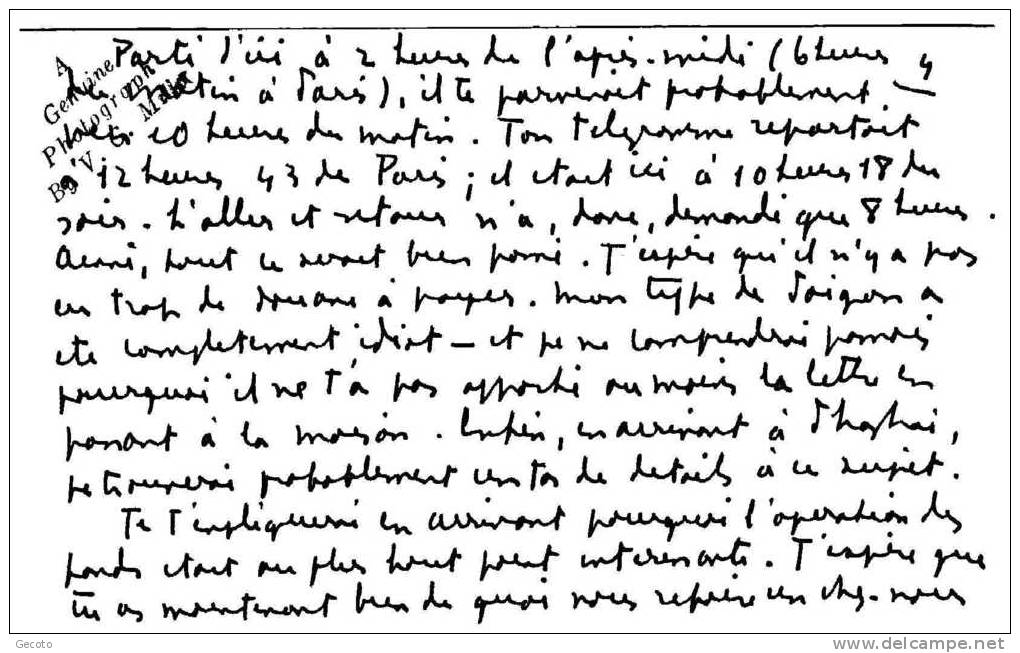 A
Genuine
Photograph
By V. Mill
Parti d'ici à 2 heures de l'après-midi (6 heures
du matin à Paris), il te parvenait probablement
vers 10 heures du matin. Ton telegramme repartait
à 12 heures 43 de Paris; il etait ici à 10 heures 18 du
soir. L'aller et retour n'a, donc, demandé que 8 heures.
Ainsi, tout ce serait bien passé. J'espère qu'il n'y a pas
eu trop de douane à payer. Mon type de Saigon a
ete completement idiot — et je ne comprendrai jamais
pourquoi il ne t'a pas apporté au moins la lettre en
passant à la maison. Enfin, en arrivant à Shaghai,
je trouverai probablement un tas de details à ce sujet.
Je t'expliquerai en arrivant pourquoi l'operation des
fonds etait au plus haut point interessante. J'espère que
tu as maintenant bien de quoi nous refaire un chez-nous
Gecoto
www.delcampe.net